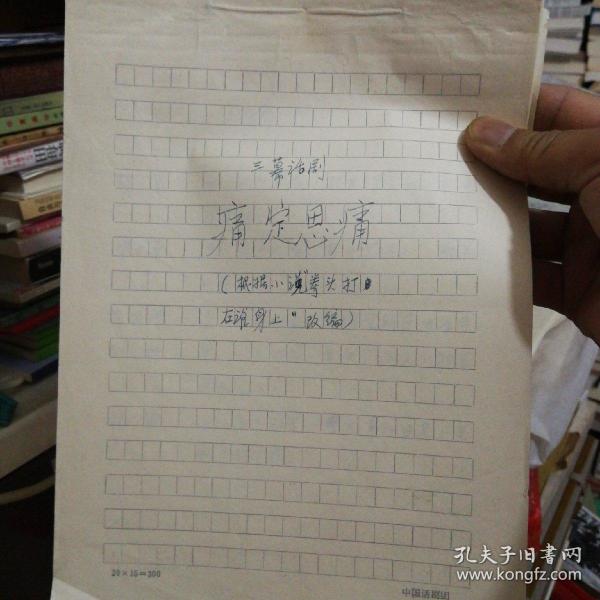 三幕话剧
痛定思痛
（根据小说"拳头打
在谁身上"改编）
20×15=300
中国话剧团
孔夫子旧书网
www.kongfz.com